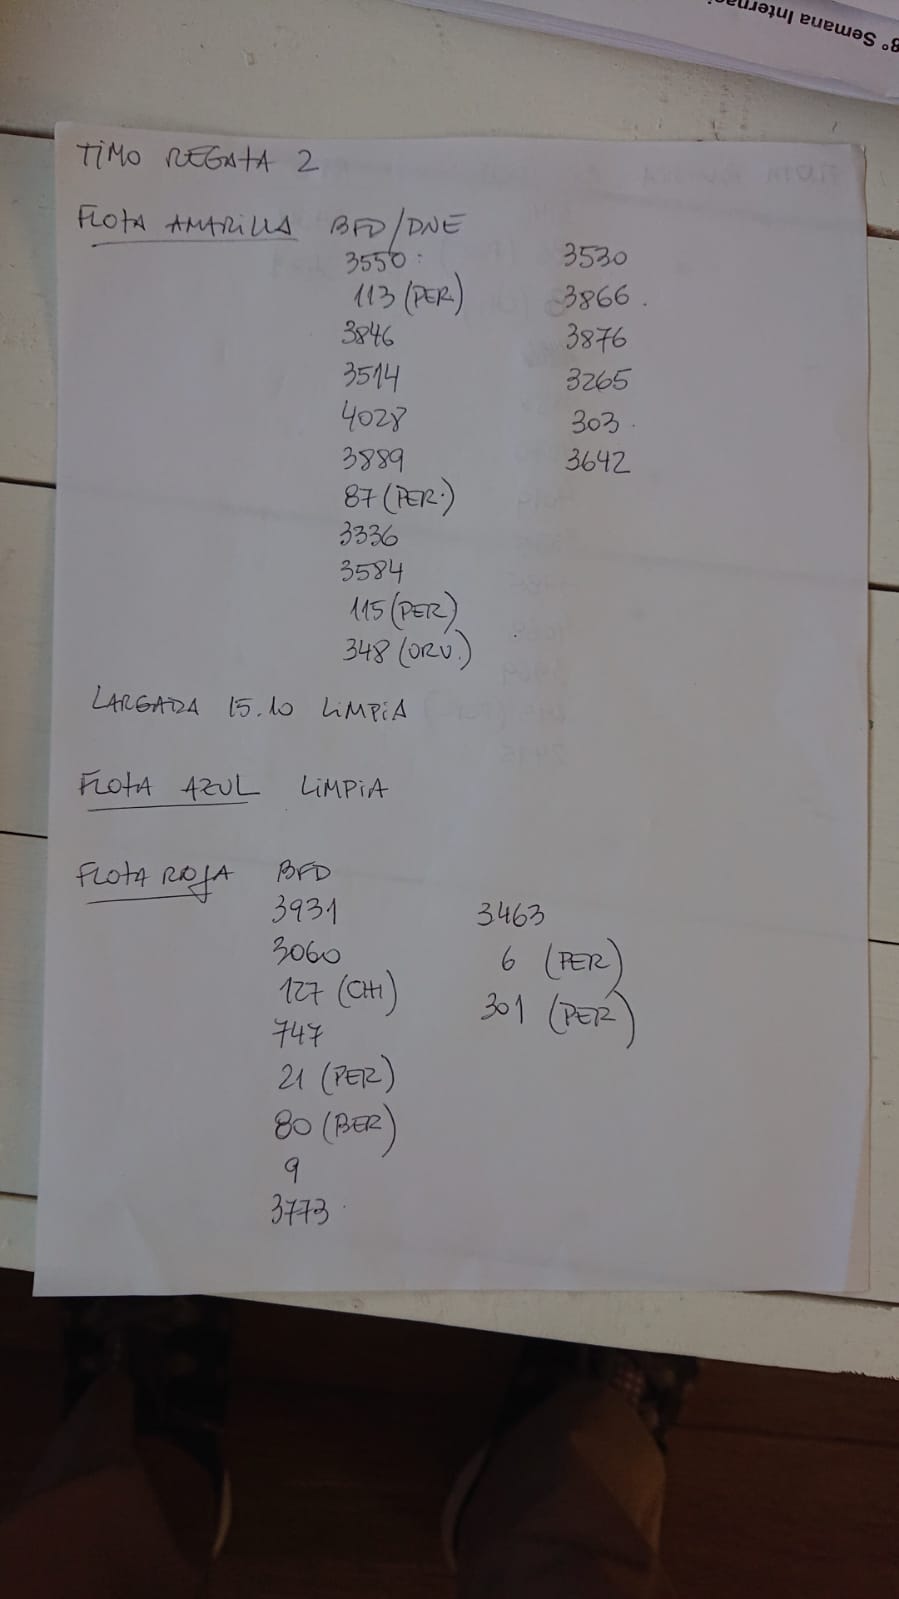 8° Semana Internaci
TIMO REGATA 2
FLOTA AMARILLA BFD/DNE
3550
113 (PER)
3846
3514
4028
3889
87 (PER.)
3336
3584
115 (PER)
348 (ORU.)
3530
3866.
3876
3265
303.
3642
LARGADA 15.10 LIMPIA
FLOTA AZUL LIMPIA
FLOTA ROJA BFD
3931
3060
127 (CHI)
747
21 (PER)
80 (BER)
9
3773
3463
6 (PER)
301 (PER)